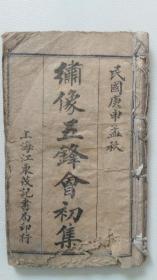 民國庚申孟秋
繡像五鋒會初集
上海江東茂記書局印行